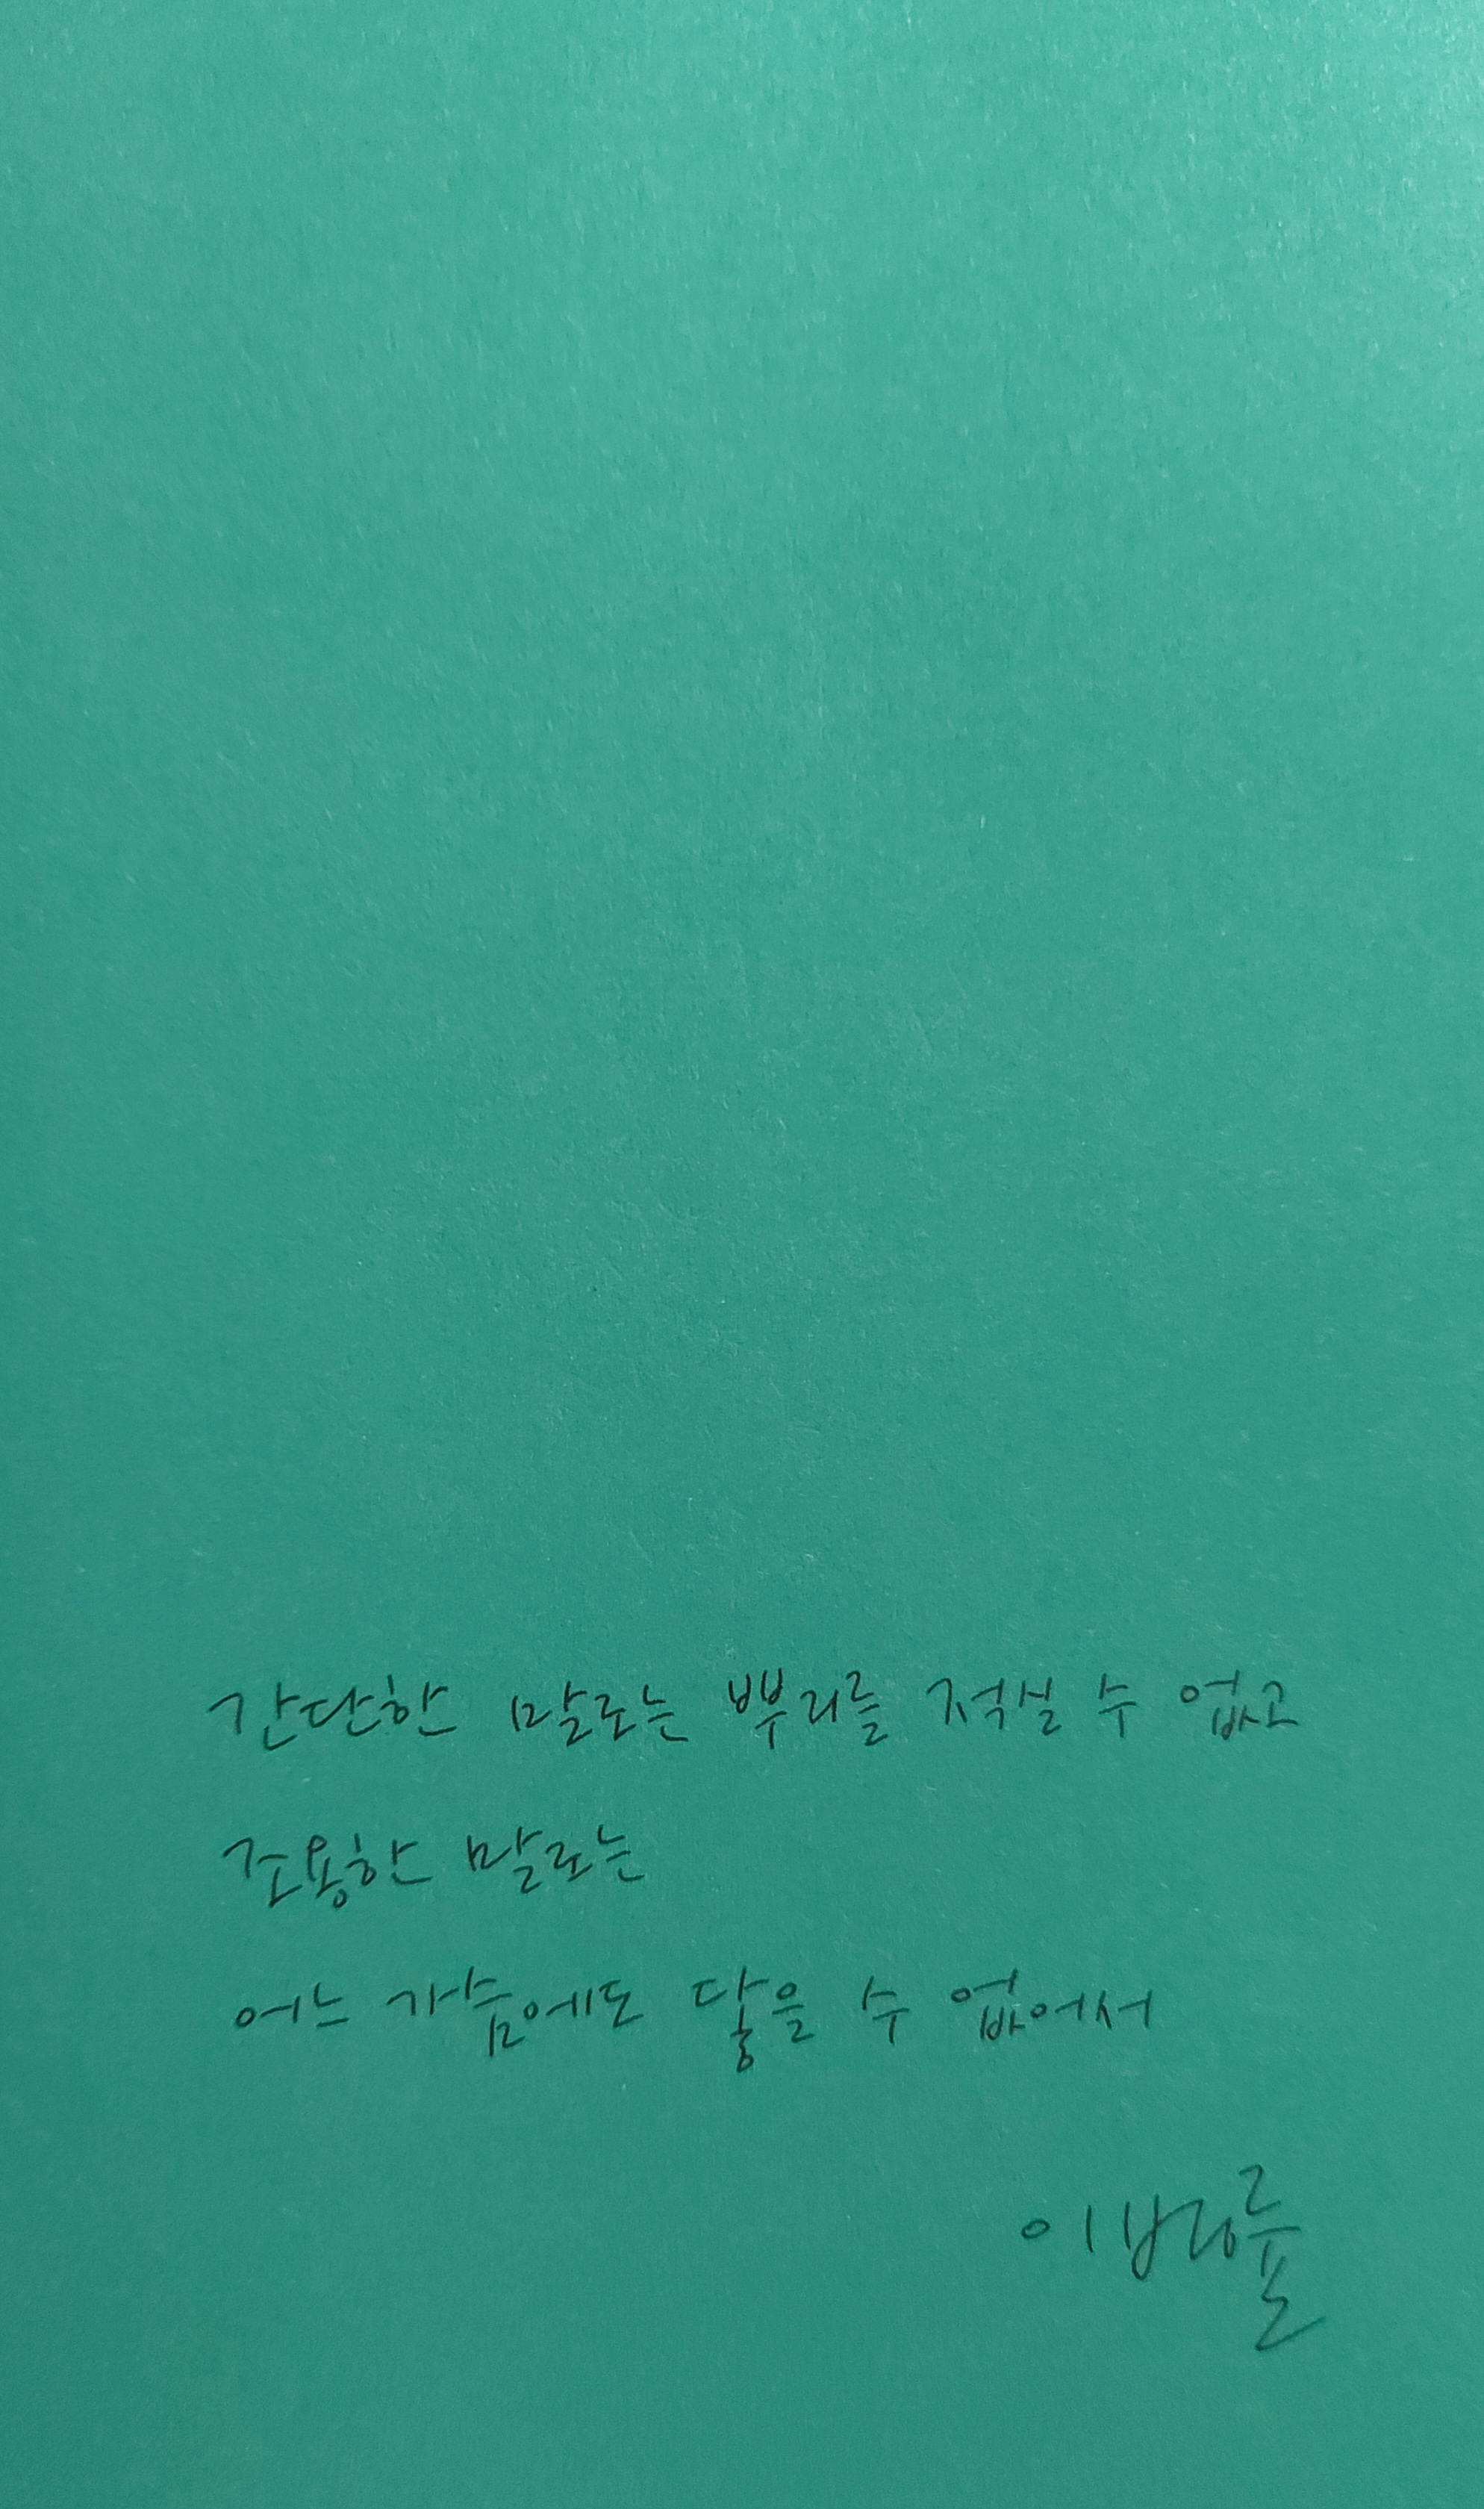 간단한 말로는 뿌리를 적실 수 없고
조용한 말로는
어느 가슴에도 닿을 수 없어서